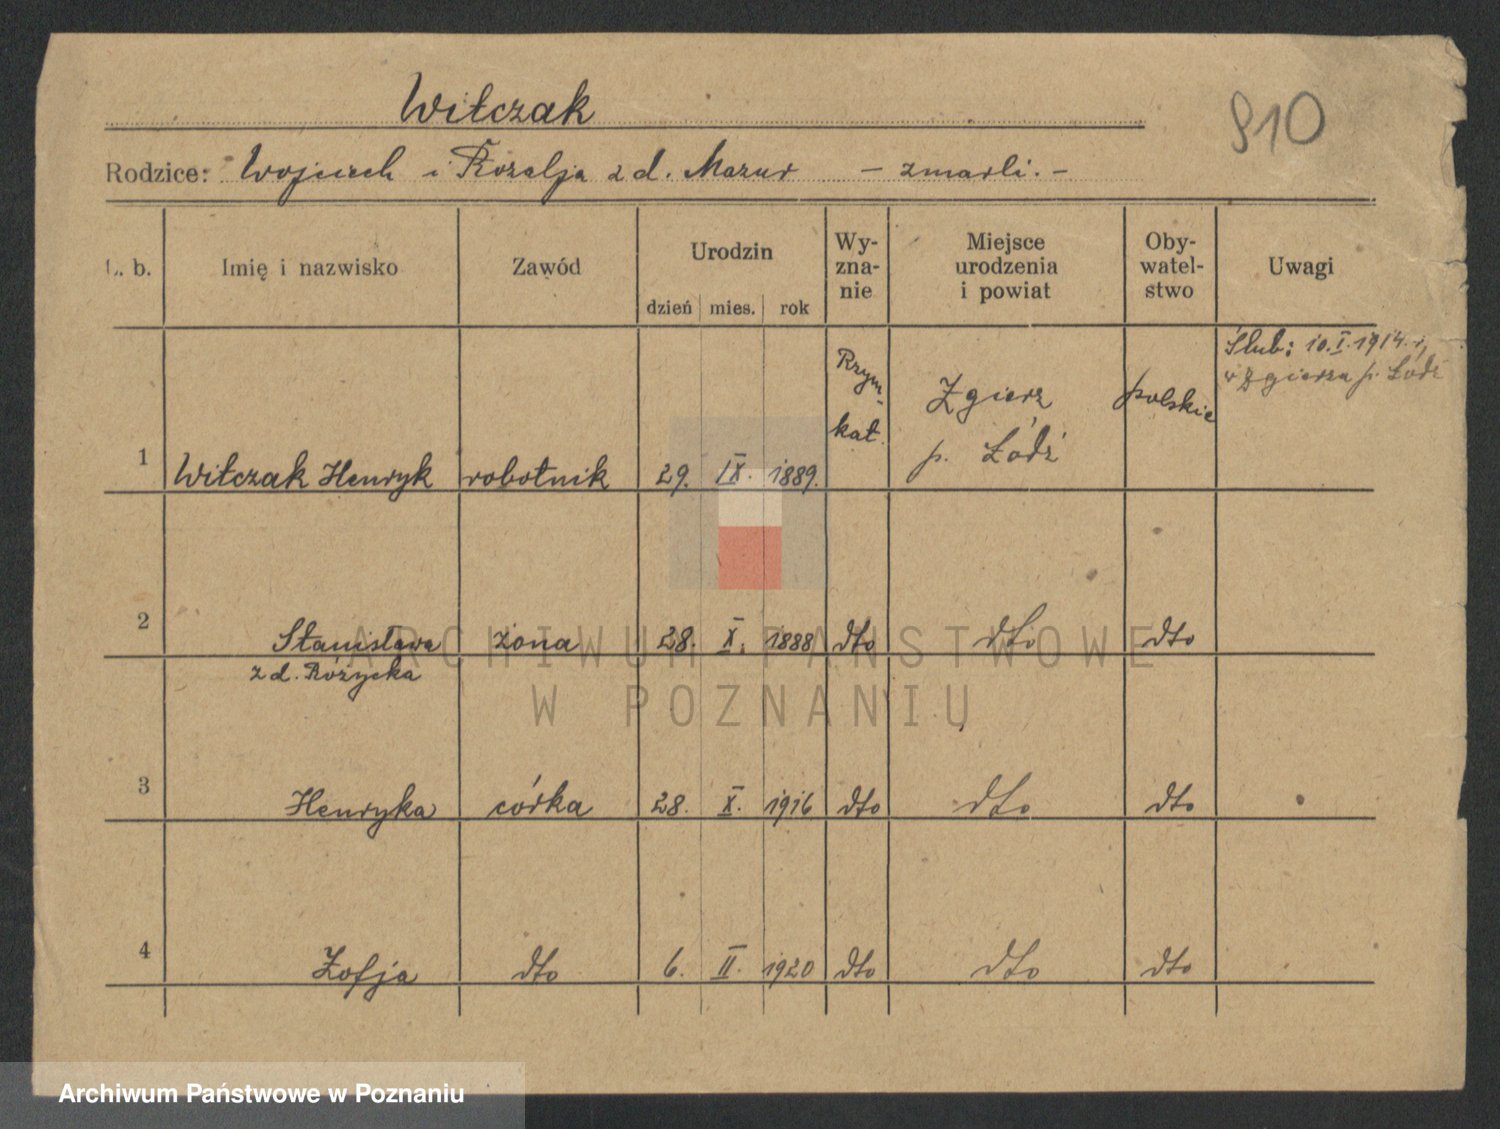 Witczak
910
Rodzice: Wojciech i Rozalja z d. Mazur — zmarli. —
L. b.
Imię i nazwisko
Zawód
Urodzin
dzień mies. rok
Wy-
zna-
nie
Miejsce
urodzenia
i powiat
Oby-
watel-
stwo
Uwagi
Ślub: 10. I. 1914. r,
w Zgierzu p. Łódź
Rzym.-
kat.
Zgierz
p. Łódź
polskie
1 Witczak Henryk robotnik 29. IX. 1889.
2 Stanisława żona 28. X. 1888 dto dto dto
z d. Różycka
3 Henryka córka 28. X. 1916 dto dto dto
4 Zofja dto 6. II. 1920 dto dto dto
ARCHIWUM PAŃSTWOWE
W POZNANIU
Archiwum Państwowe w Poznaniu